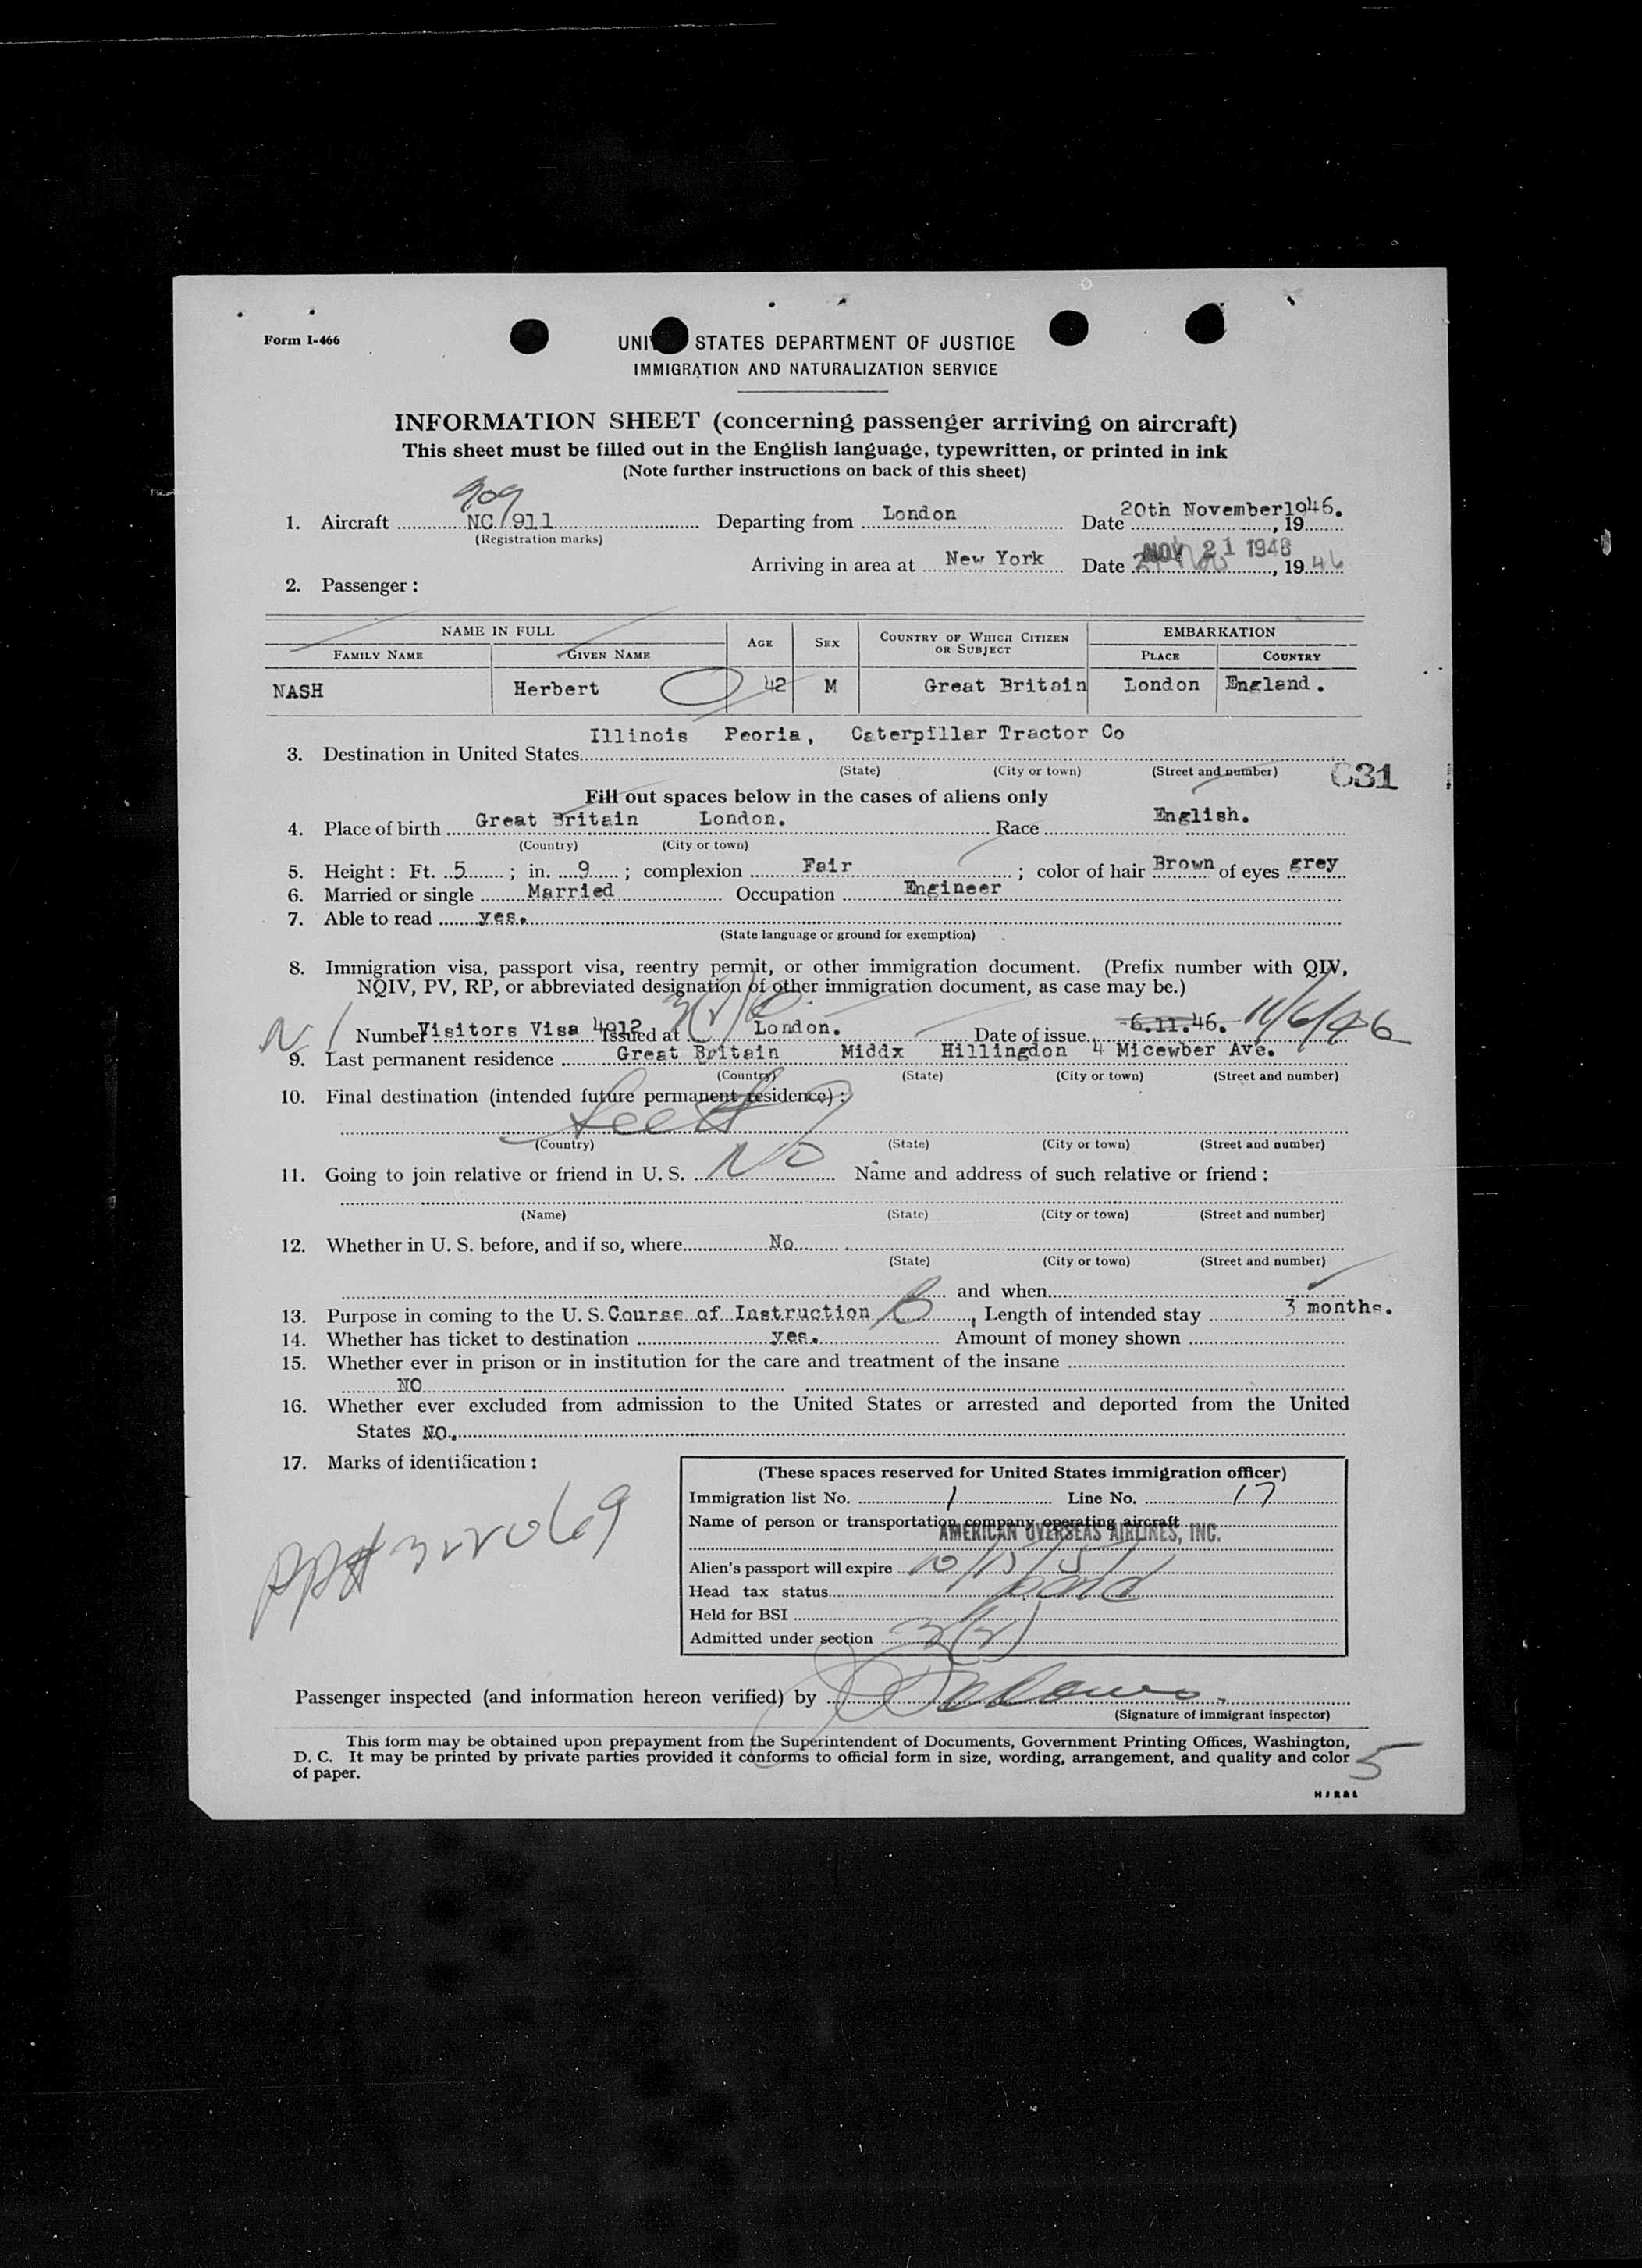 Form I-466
UNI STATES DEPARTMENT OF JUSTICE
IMMIGRATION AND NATURALIZATION SERVICE
INFORMATION SHEET (concerning passenger arriving on aircraft)
This sheet must be filled out in the English language, typewritten, or printed in ink
(Note further instructions on back of this sheet)
909
1. Aircraft NC 911 Departing from London Date 20th November 1946. , 19
(Registration marks)
Arriving in area at New York Date NOV 21 1946 , 19 46
2. Passenger :
NAME IN FULL AGE SEX COUNTRY OF WHICH CITIZEN OR SUBJECT EMBARKATION
FAMILY NAME GIVEN NAME PLACE COUNTRY
NASH Herbert 42 M Great Britain London England.
3. Destination in United States Illinois Peoria, Caterpillar Tractor Co
(State) (City or town) (Street and number) 631
Fill out spaces below in the cases of aliens only
4. Place of birth Great Britain London. Race English.
(Country) (City or town)
5. Height : Ft. 5 ; in. 9 ; complexion Fair ; color of hair Brown of eyes grey
6. Married or single Married Occupation Engineer
7. Able to read yes.
(State language or ground for exemption)
8. Immigration visa, passport visa, reentry permit, or other immigration document. (Prefix number with QIV,
NQIV, PV, RP, or abbreviated designation of other immigration document, as case may be.)
Number Visitors Visa 4912 Issued at London. Date of issue 6.11.46. 11/6/46
9. Last permanent residence Great Britain Middx Hillingdon 4 Micewber Ave.
(Country) (State) (City or town) (Street and number)
10. Final destination (intended future permanent residence) :
(Country) (State) (City or town) (Street and number)
11. Going to join relative or friend in U. S. No Name and address of such relative or friend :
(Name) (State) (City or town) (Street and number)
12. Whether in U. S. before, and if so, where No
(State) (City or town) (Street and number)
and when
13. Purpose in coming to the U. S. Course of Instruction B , Length of intended stay 3 months.
14. Whether has ticket to destination yes. Amount of money shown
15. Whether ever in prison or in institution for the care and treatment of the insane
NO
16. Whether ever excluded from admission to the United States or arrested and deported from the United
States NO.
17. Marks of identification :
(These spaces reserved for United States immigration officer)
Immigration list No. 1 Line No. 17
Name of person or transportation company operating aircraft
AMERICAN OVERSEAS AIRLINES, INC.
Alien's passport will expire 10/15/51
Head tax status paid
Held for BSI
Admitted under section 3(2)
Passenger inspected (and information hereon verified) by
(Signature of immigrant inspector)
This form may be obtained upon prepayment from the Superintendent of Documents, Government Printing Offices, Washington,
D. C. It may be printed by private parties provided it conforms to official form in size, wording, arrangement, and quality and color
of paper.
5